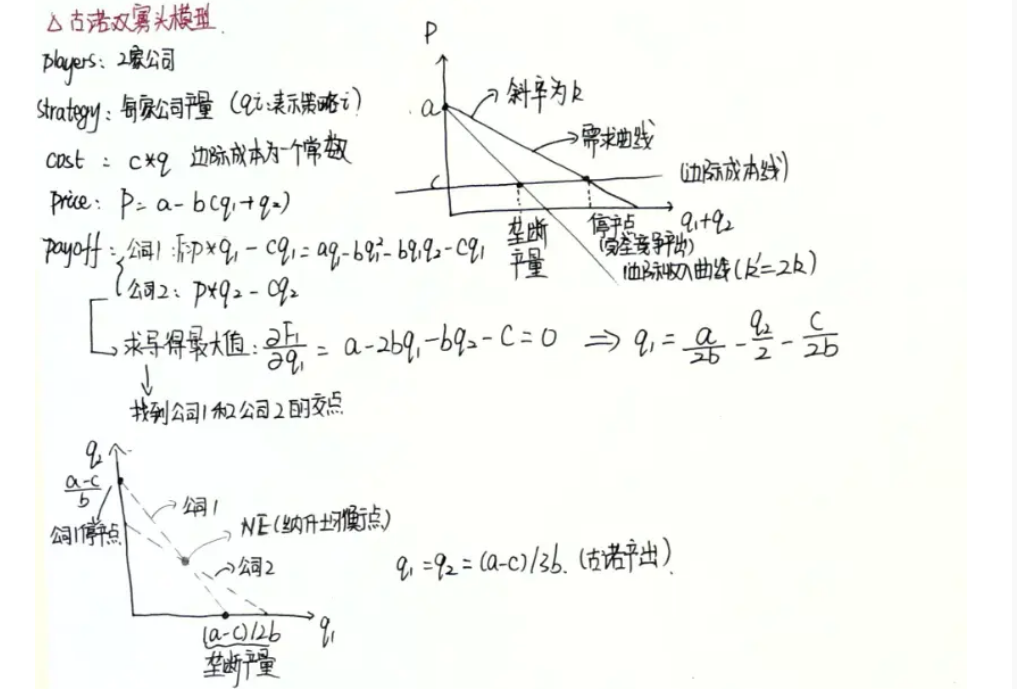 △ 古诺双寡头模型
players: 2家公司
strategy: 每家公司产量 (qi:表示策略i)
cost : c*q 边际成本为一个常数
price: P = a - b(q₁+q₂)
payoff: 公司1: F₁:p*q₁ - cq₁ = aq₁-bq₁²-bq₁q₂-cq₁
公司2: p*q₂ - cq₂
求导得最大值: ∂F₁/∂q₁ = a-2bq₁-bq₂-c=0 ⇒ q₁ = a/2b - q₂/2 - c/2b
找到公司1和公司2的交点
P
a
斜率为k
需求曲线
c
(边际成本线)
q₁+q₂
垄断
产量
停产点
(完全竞争产出)
边际收入曲线(k'=2k)
q₂
(a-c)/b
公司1停产点
公司1
NE(纳什均衡点)
公司2
q₁
(a-c)/2b
垄断产量
q₁=q₂=(a-c)/3b. (古诺产出)